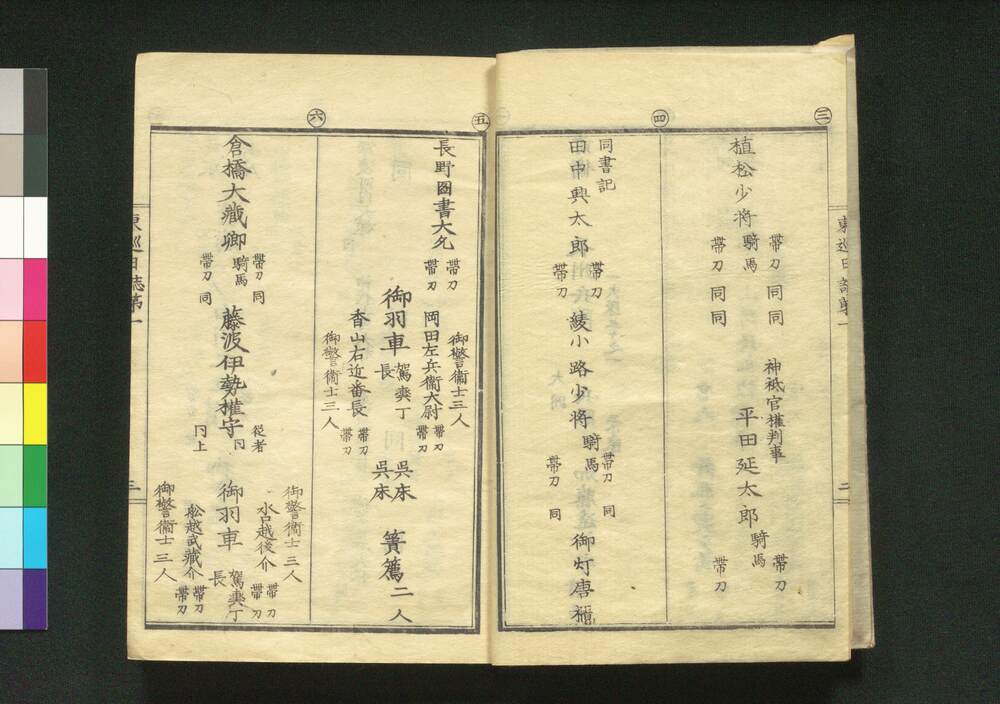 三
植松少将
騎馬
帯刀 同 同
帯刀 同 同
神祇官権判事
平田延太郎
騎馬
帯刀
帯刀
四
同書記
田中興太郎
帯刀
帯刀
綾小路少将
騎馬
帯刀 同
帯刀 同
御灯唐櫃
五
長野図書大允
帯刀
帯刀
御警衛士三人
岡田左兵衛大尉
帯刀
帯刀
御羽車
駕輿丁
長
香山右近番長
帯刀
帯刀
御警衛士三人
呉床
呉床
簀薦二人
六
倉橋大蔵卿
騎馬
帯刀 同
帯刀 同
藤波伊勢権守
従者
同
同上
御警衛士三人
水口越後介
帯刀
帯刀
御羽車
駕輿丁
長
松越武蔵介
帯刀
帯刀
御警衛士三人
東巡日誌第一
二
東巡日誌第一
三